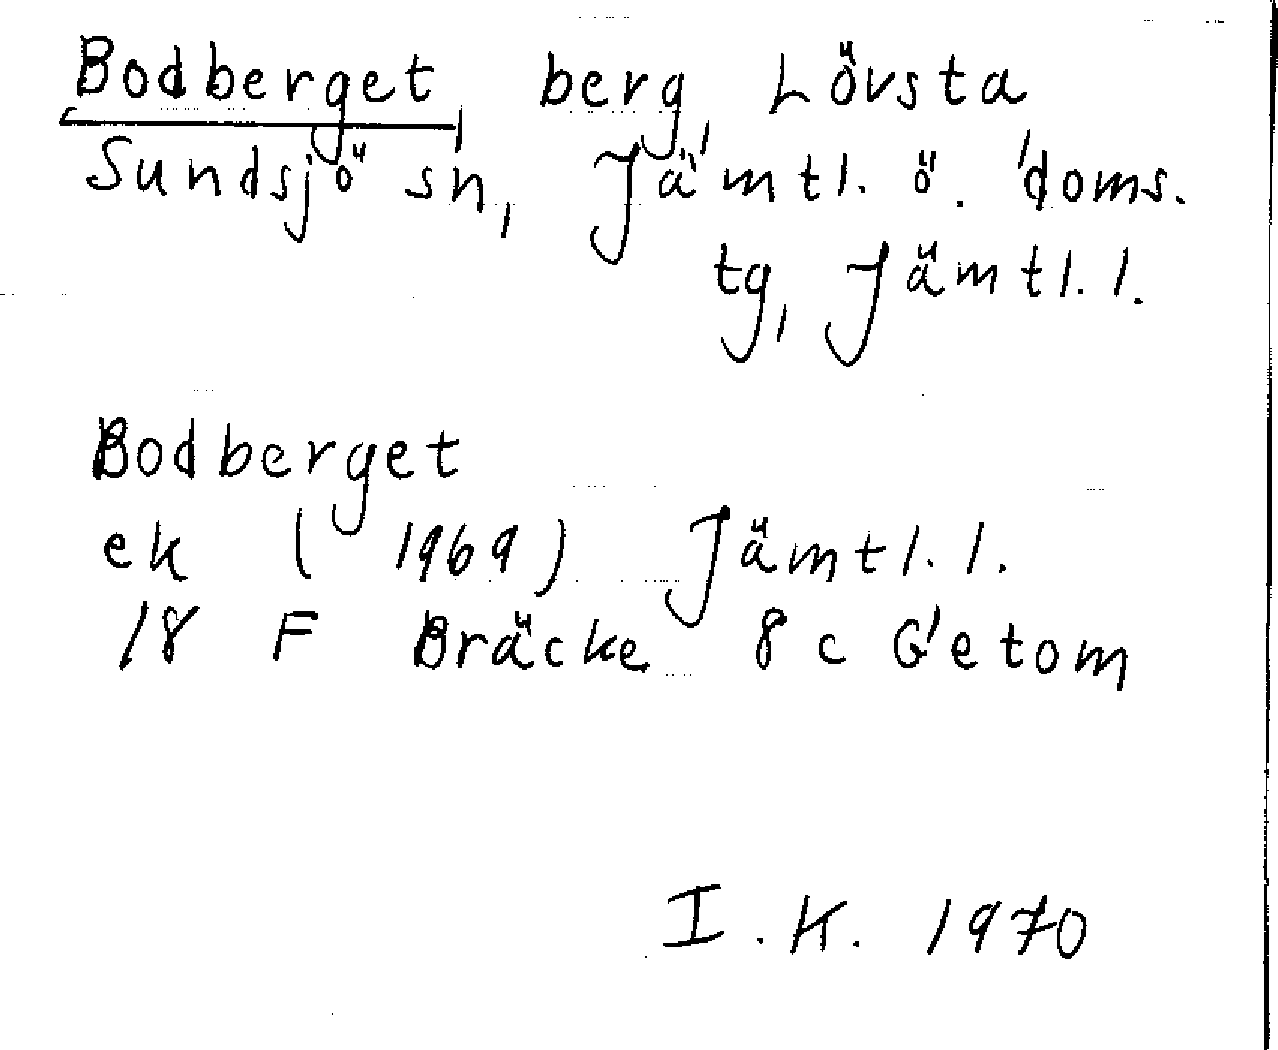 Bodberget, berg, Lövsta
Sundsjö sn, Jämtl. ö. doms.
tg, Jämtl. l.
Bodberget
ek (1969) Jämtl. l.
18 F Bräcke 8 c Getom
I. K. 1970